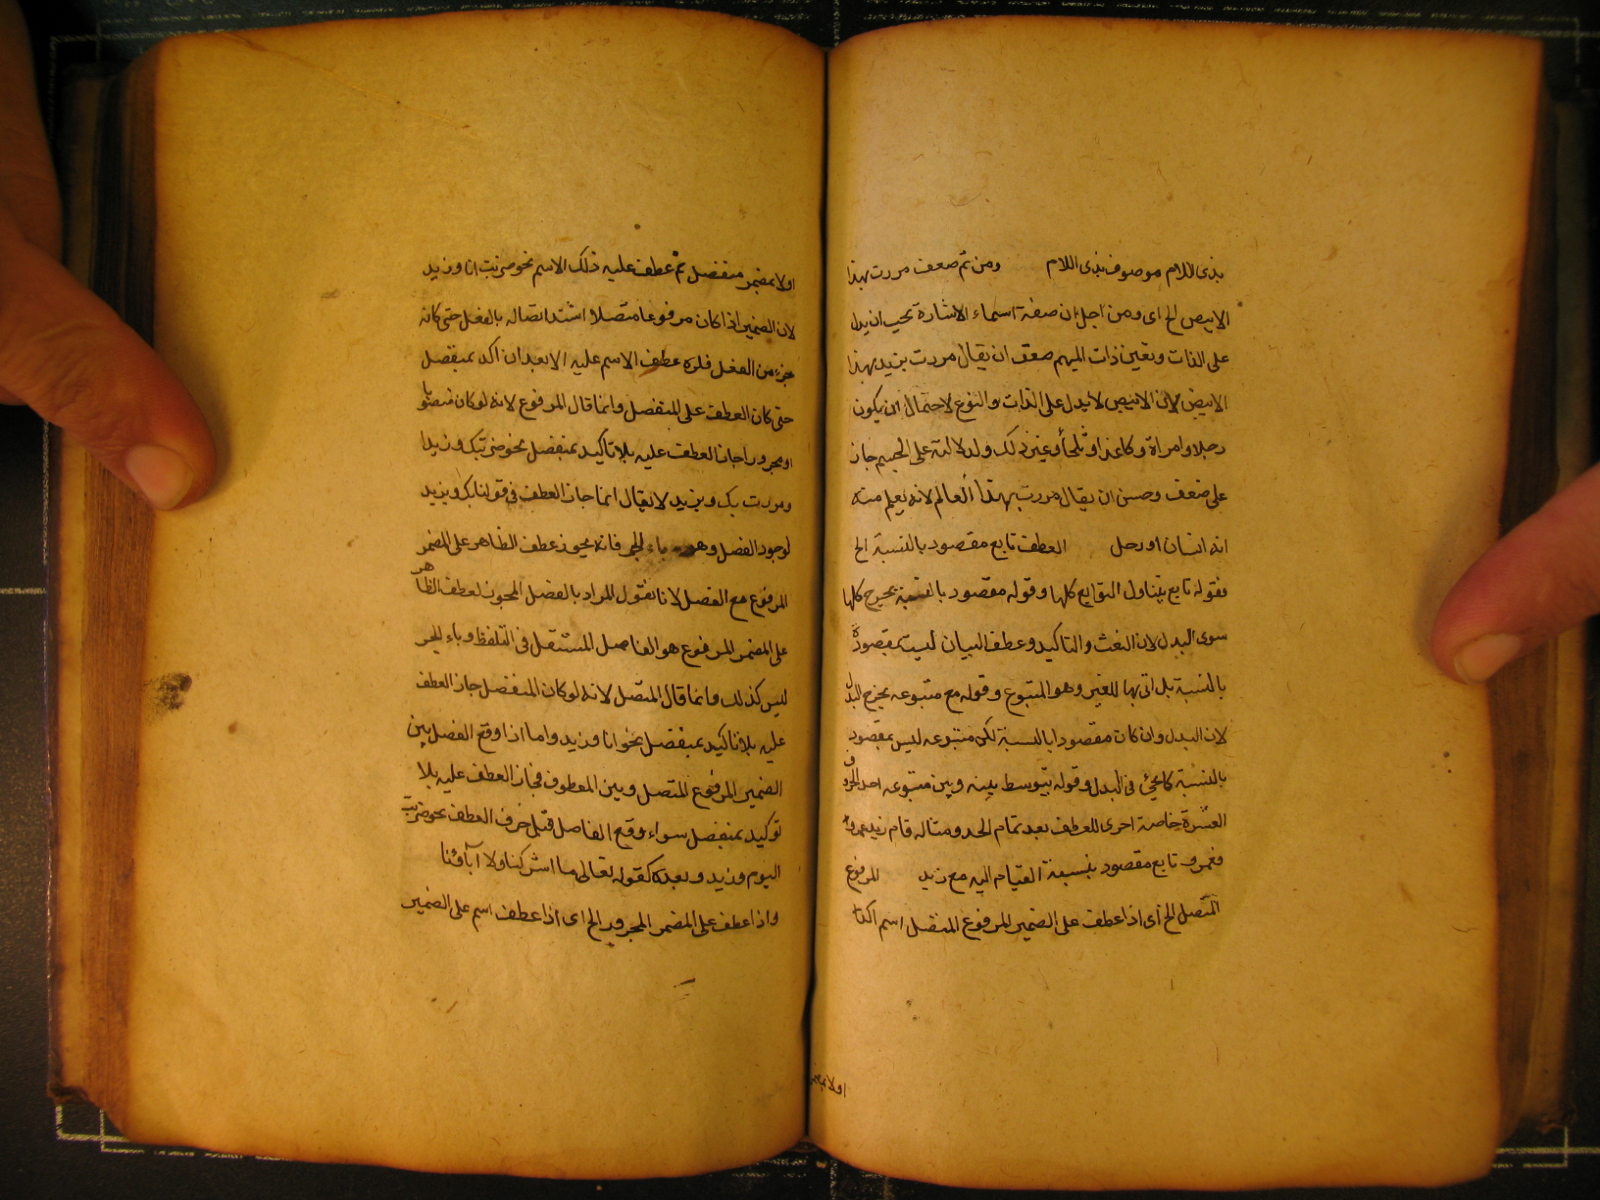 بذى اللام موصوف بذى اللام ومن ثم ضعف مررت بهذا
الابيض الخ اى ومن اجل ان صفة اسماء الاشارة يجب ان يدل
على الذات وتعين ذات المبهم ضعف ان يقال مررت بزيد بهذا
الابيض لان الابيض لا يدل على الذات والنوع لاحتمال ان يكون
رجلا وامراة وكاغذا وثلجا وغير ذلك ولدلالته على الجسم جاز
على ضعف وحسن ان يقال مررت بهذا العالم لانه يعلم منه
انه انسان او رجل العطف تابع مقصود بالنسبة الخ
فقوله تابع يتناول التوابع كلها وقوله مقصود بالنسبة يخرج كلها
سوى البدل لان النعت والتاكيد وعطف البيان ليست بمقصودة
بالنسبة بل اتى بها للغير وهو المتبوع وقوله مع متبوعه يخرج البدل
لان البدل وان كان مقصودا بالنسبة لكن متبوعه ليس بمقصود
بالنسبة كما يجئ فى البدل وقوله يتوسط بينه وبين متبوعه احد الحروف
العشرة خاصة اخرى للعطف بعد تمام الحد ومثاله قام زيد وعمرو
فعمرو تابع مقصود بنسبة القيام اليه مع زيد المرفوع
المتصل الخ اى اذا عطف على الضمير المرفوع المتصل اسم اكد
اولا بمضمر
اولا بمضمر منفصل ثم عطف عليه ذلك الاسم نحو ضربت انا وزيد
لان الضمير اذا كان مرفوعا متصلا اشتد اتصاله بالفعل حتى كانه
جزء من الفعل فكره عطف الاسم عليه الا بعد ان اكد بمنفصل
حتى كان العطف على المنفصل وانما قال المرفوع لانه لو كان منصوبا
او مجرورا جاز العطف عليه بلا تاكيد بمنفصل نحو ضربتك وزيدا
ومررت بك وبزيد لا يقال انما جاز العطف فى قولنا بك وبزيد
لوجود الفصل وهو باء الجر فانه يجوز عطف الظاهر على المضمر
المرفوع مع الفصل لانا نقول المراد بالفصل المجوز لعطف الظاهر
على المضمر المرفوع هو الفاصل المستقل فى التلفظ وباء الجر
ليس كذلك وانما قال المتصل لانه لو كان المنفصل جاز العطف
عليه بلا تاكيد بمنفصل نحو انا وزيد واما اذا وقع الفصل بين
الضمير المرفوع المتصل وبين المعطوف فجاز العطف عليه بلا
توكيد بمنفصل سواء وقع الفاصل قبل حرف العطف نحو ضربت
اليوم وزيد وبعده كقوله تعالى ما اشركنا ولا آباؤنا
واذا عطف على المضمر المجرور الخ اى اذا عطف اسم على الضمير